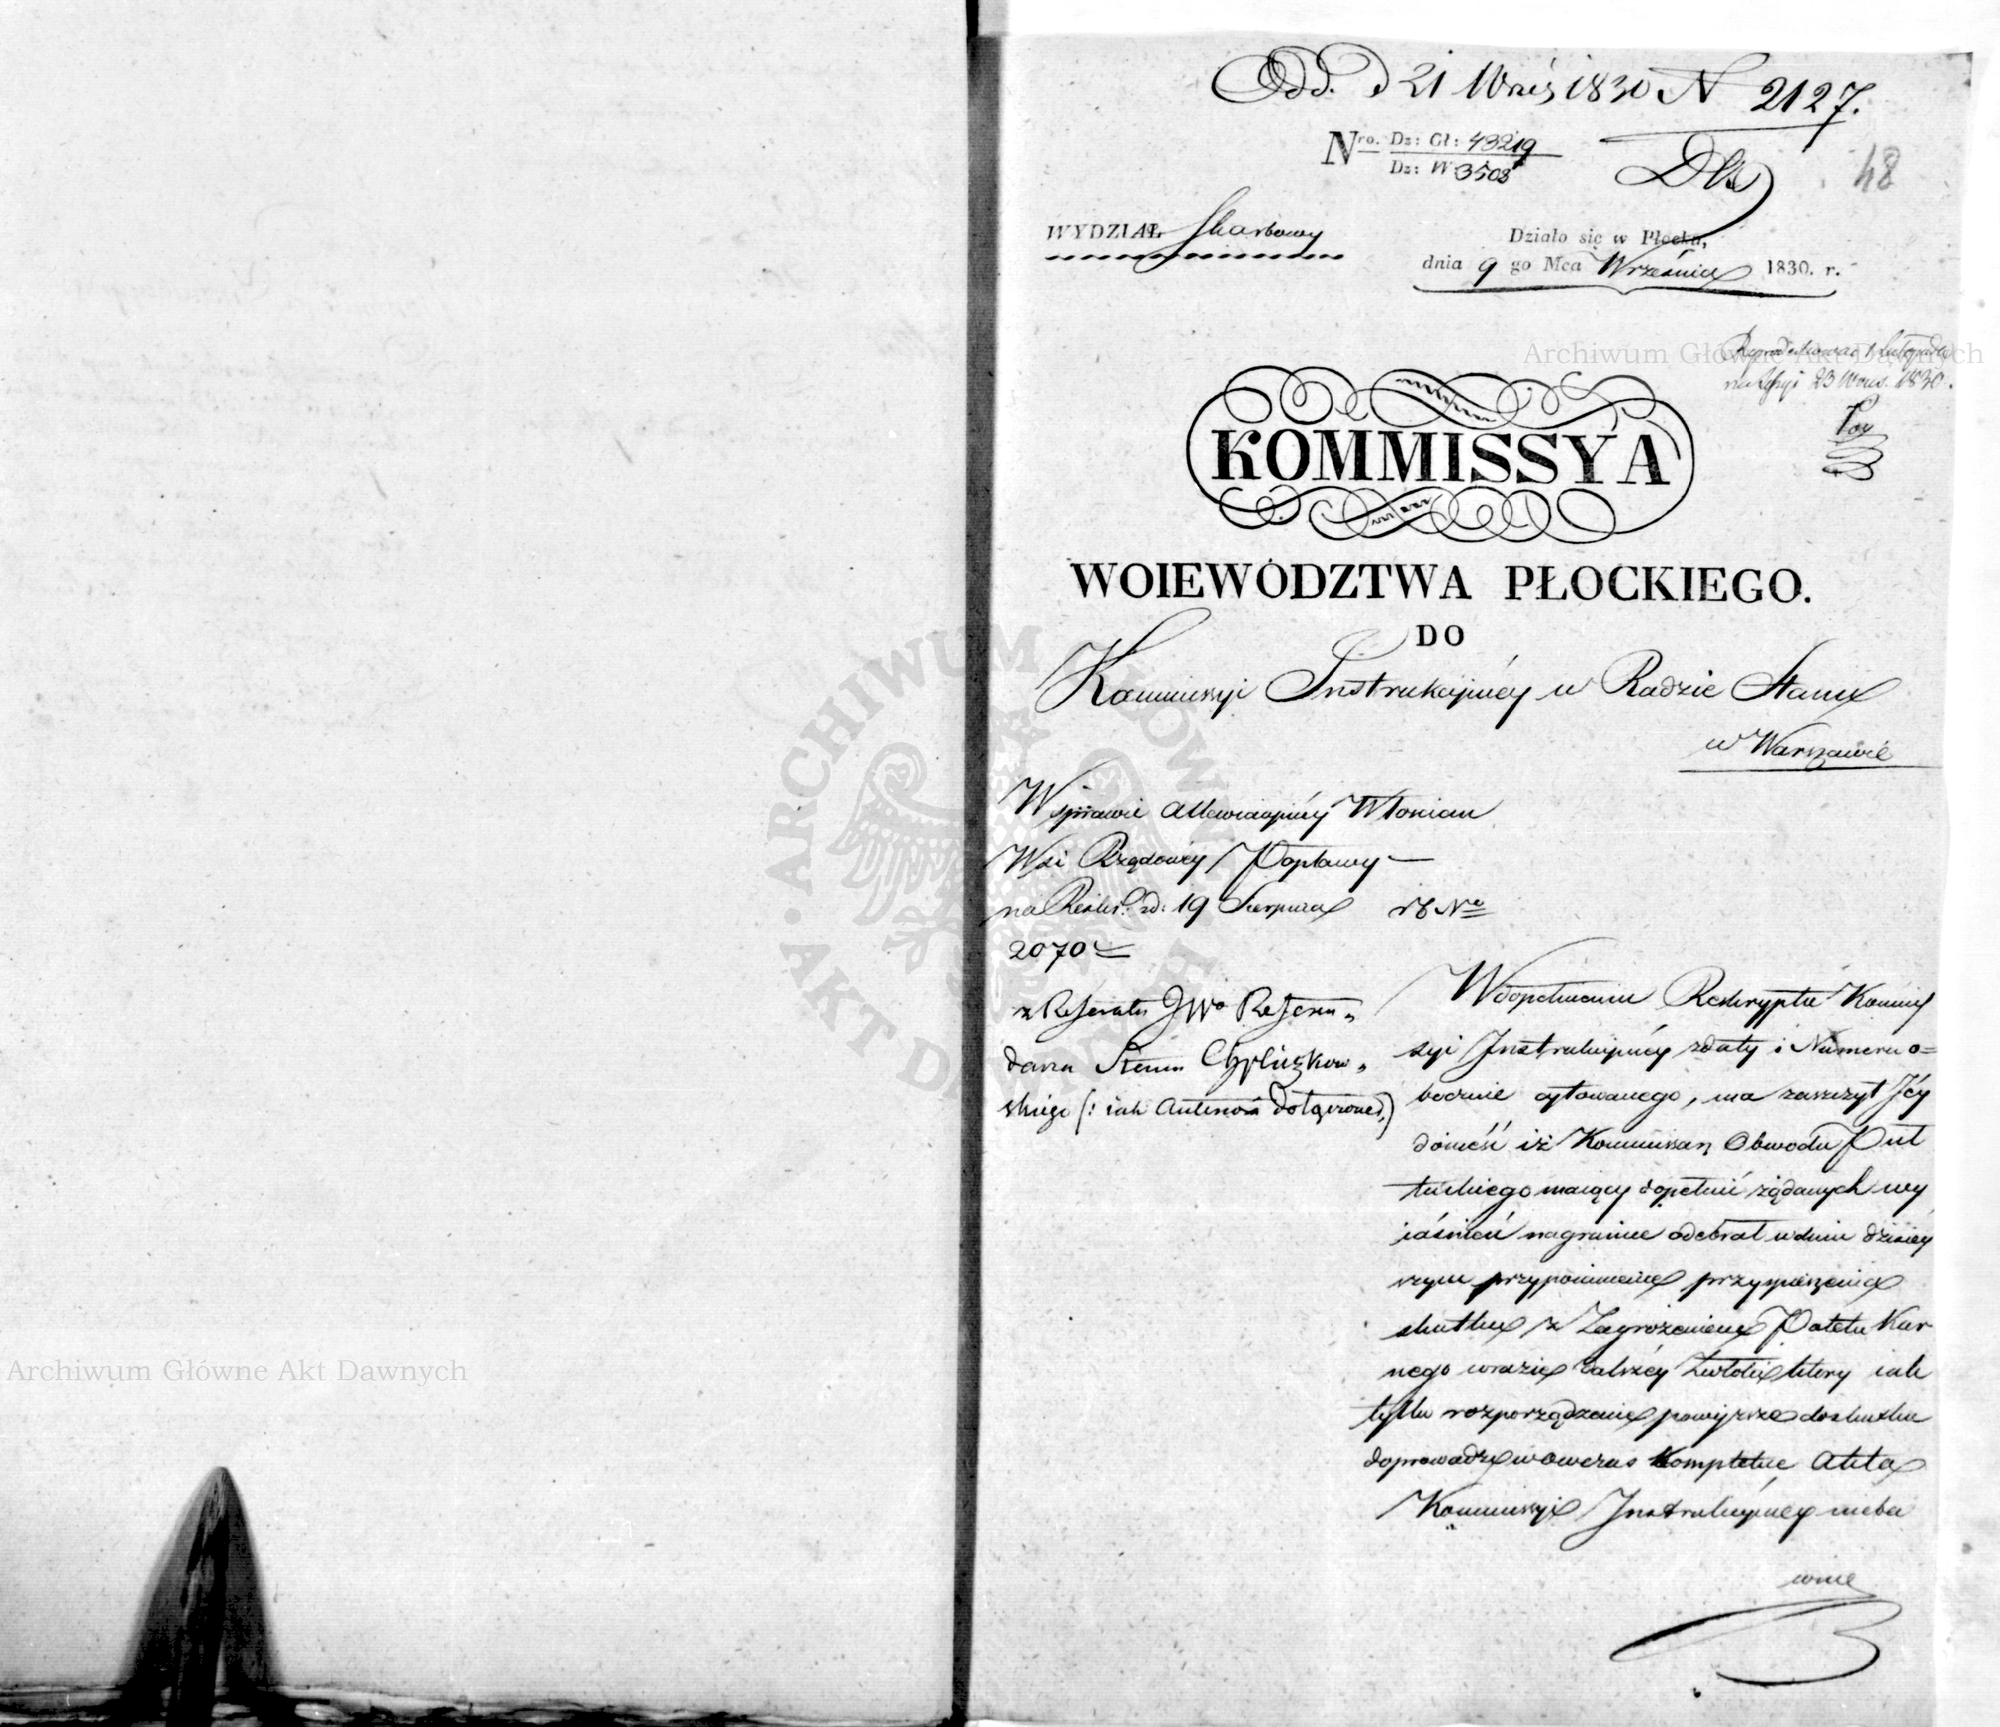 Odd. d 21 Wrześ 1830 N 2127.
Nro. Dz: Gł: 43219
Dz: W 3508
48
WYDZIAŁ Skarbowy
Działo się w Płocku,
dnia 9 go Mca Września 1830. r.
na Sessyi 23 Wrześ. 1830.
KOMMISSYA
WOIEWÓDZTWA PŁOCKIEGO.
DO
Kommissyi Instrukcyiney w Radzie Stanu
w Warszawie
W sprawie Włościan
Wsi Rządowéy Popławy
na Reskr. zd: 19 Sierpnia rb No
2070
z Referatu JWo Referen„
darza Stanu Chyliczkow„
skiego (: iak Antenora dołączone:)
W dopełnieniu Reskryptu Kommis
syi Instrukcyinéy z daty i Numeru o=
bocznie cytowanego, ma zaszczyt Jéy
donieść iż Kommissarz Obwodu Puł
tuskiego maiący dopełnić żądanych wy
iaśnień na gruncie odebrał w dniu dzisiéy
szym przypomnienie przyspieszenia
skutku z Zagrożeniem Poletu Kar
nego w razie dalszéy Zwłoki który iak
tylko rozporządzenie powyższe do skutku
doprowadzi wówczas kompletne Akta
Kommissyi Instrukcyinéy nieba
wnie
Archiwum Główne Akt Dawnych
Archiwum Główne Akt Dawnych
ARCHIWUM GŁÓWNE AKT DAWNYCH